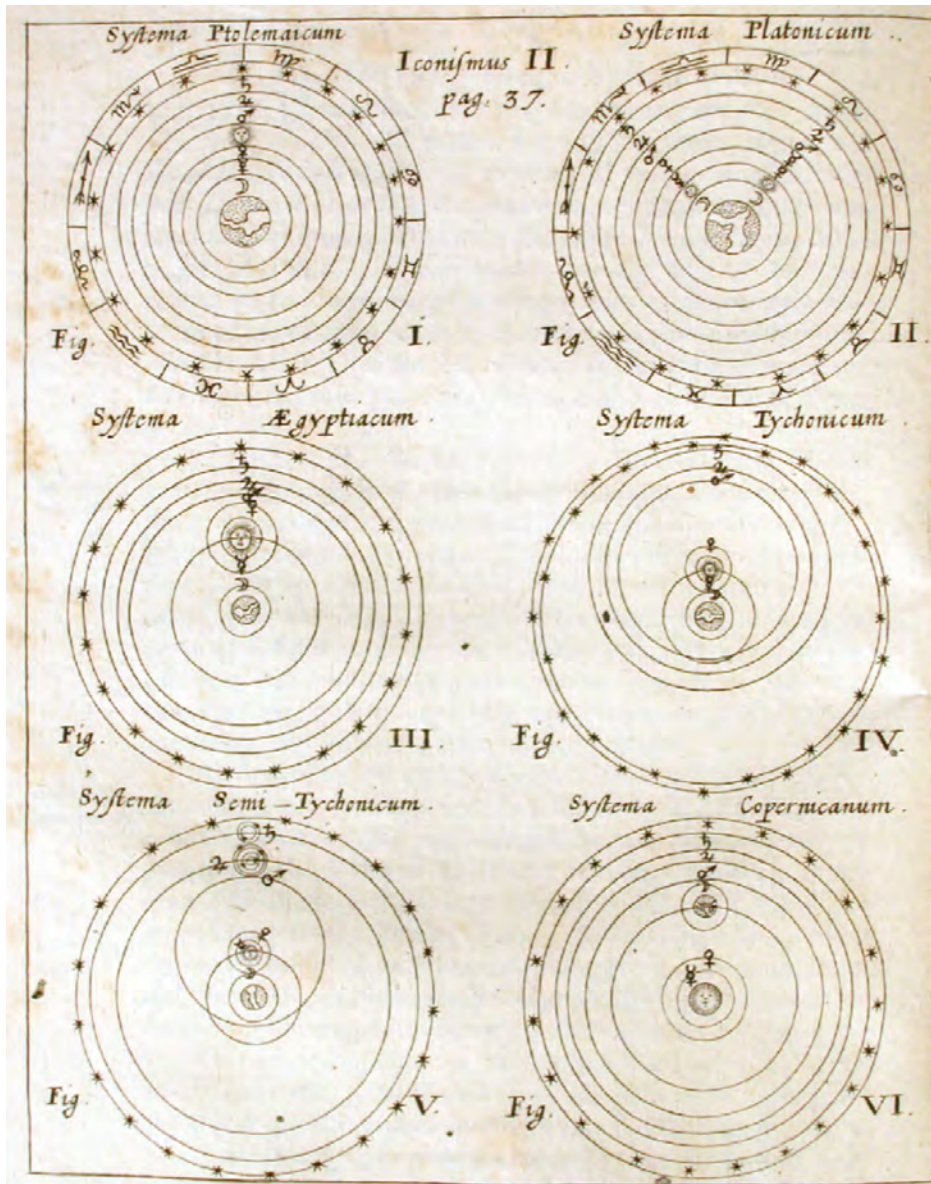 Systema Ptolemaicum
Iconismus II.
pag. 37.
Systema Platonicum.
Fig. I.
Fig. II.
Systema Ægyptiacum.
Systema Tychonicum.
Fig. III.
Fig. IV.
Systema Semi-Tychonicum.
Systema Copernicanum.
Fig. V.
Fig. VI.